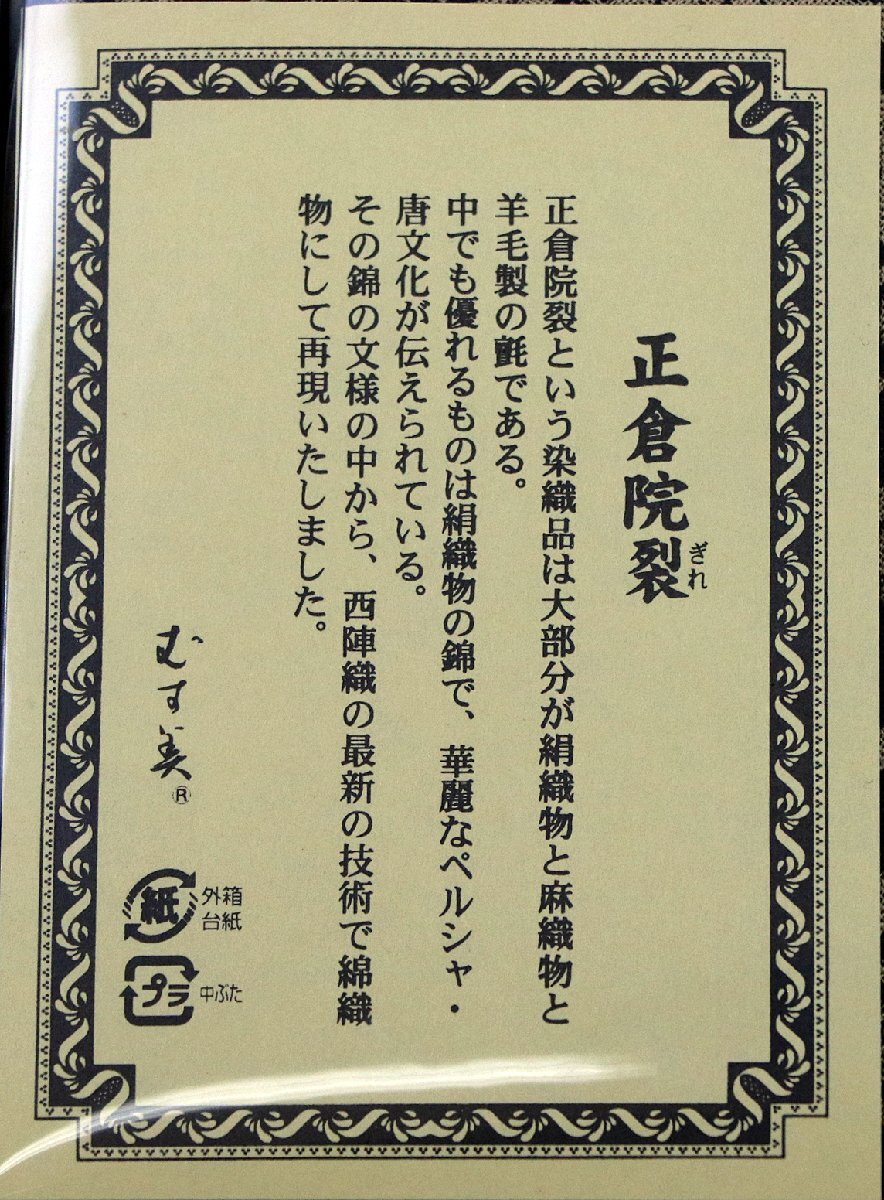 正倉院裂
ぎれ
正倉院裂という染織品は大部分が絹織物と麻織物と
羊毛製の氈である。
中でも優れるものは絹織物の錦で、華麗なペルシャ・
唐文化が伝えられている。
その錦の文様の中から、西陣織の最新の技術で綿織
物にして再現いたしました。
むす美®
紙
外箱
台紙
プラ
中ぶた